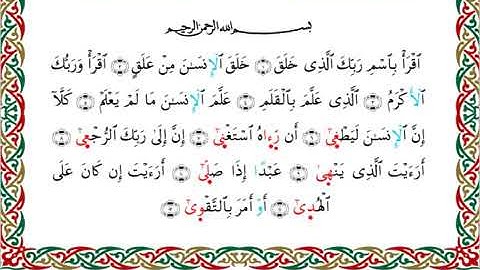 بسم الله الرحمن الرحيم
ٱقْرَأْ بِٱسْمِ رَبِّكَ ٱلَّذِى خَلَقَ ۝ خَلَقَ ٱلْإِنسَٰنَ مِنْ عَلَقٍ ۝ ٱقْرَأْ وَرَبُّكَ
ٱلْأَكْرَمُ ۝ ٱلَّذِى عَلَّمَ بِٱلْقَلَمِ ۝ عَلَّمَ ٱلْإِنسَٰنَ مَا لَمْ يَعْلَمْ ۝ كَلَّآ
إِنَّ ٱلْإِنسَٰنَ لَيَطْغَىٰٓ ۝ أَن رَّءَاهُ ٱسْتَغْنَىٰٓ ۝ إِنَّ إِلَىٰ رَبِّكَ ٱلرُّجْعَىٰٓ ۝
أَرَءَيْتَ ٱلَّذِى يَنْهَىٰ ۝ عَبْدًا إِذَا صَلَّىٰٓ ۝ أَرَءَيْتَ إِن كَانَ عَلَى
ٱلْهُدَىٰٓ ۝ أَوْ أَمَرَ بِٱلتَّقْوَىٰٓ ۝